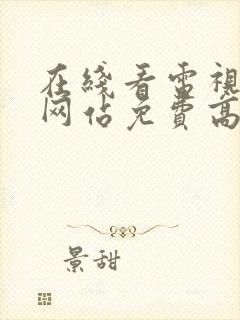 在綫看雷視
网佔免費高
景甜